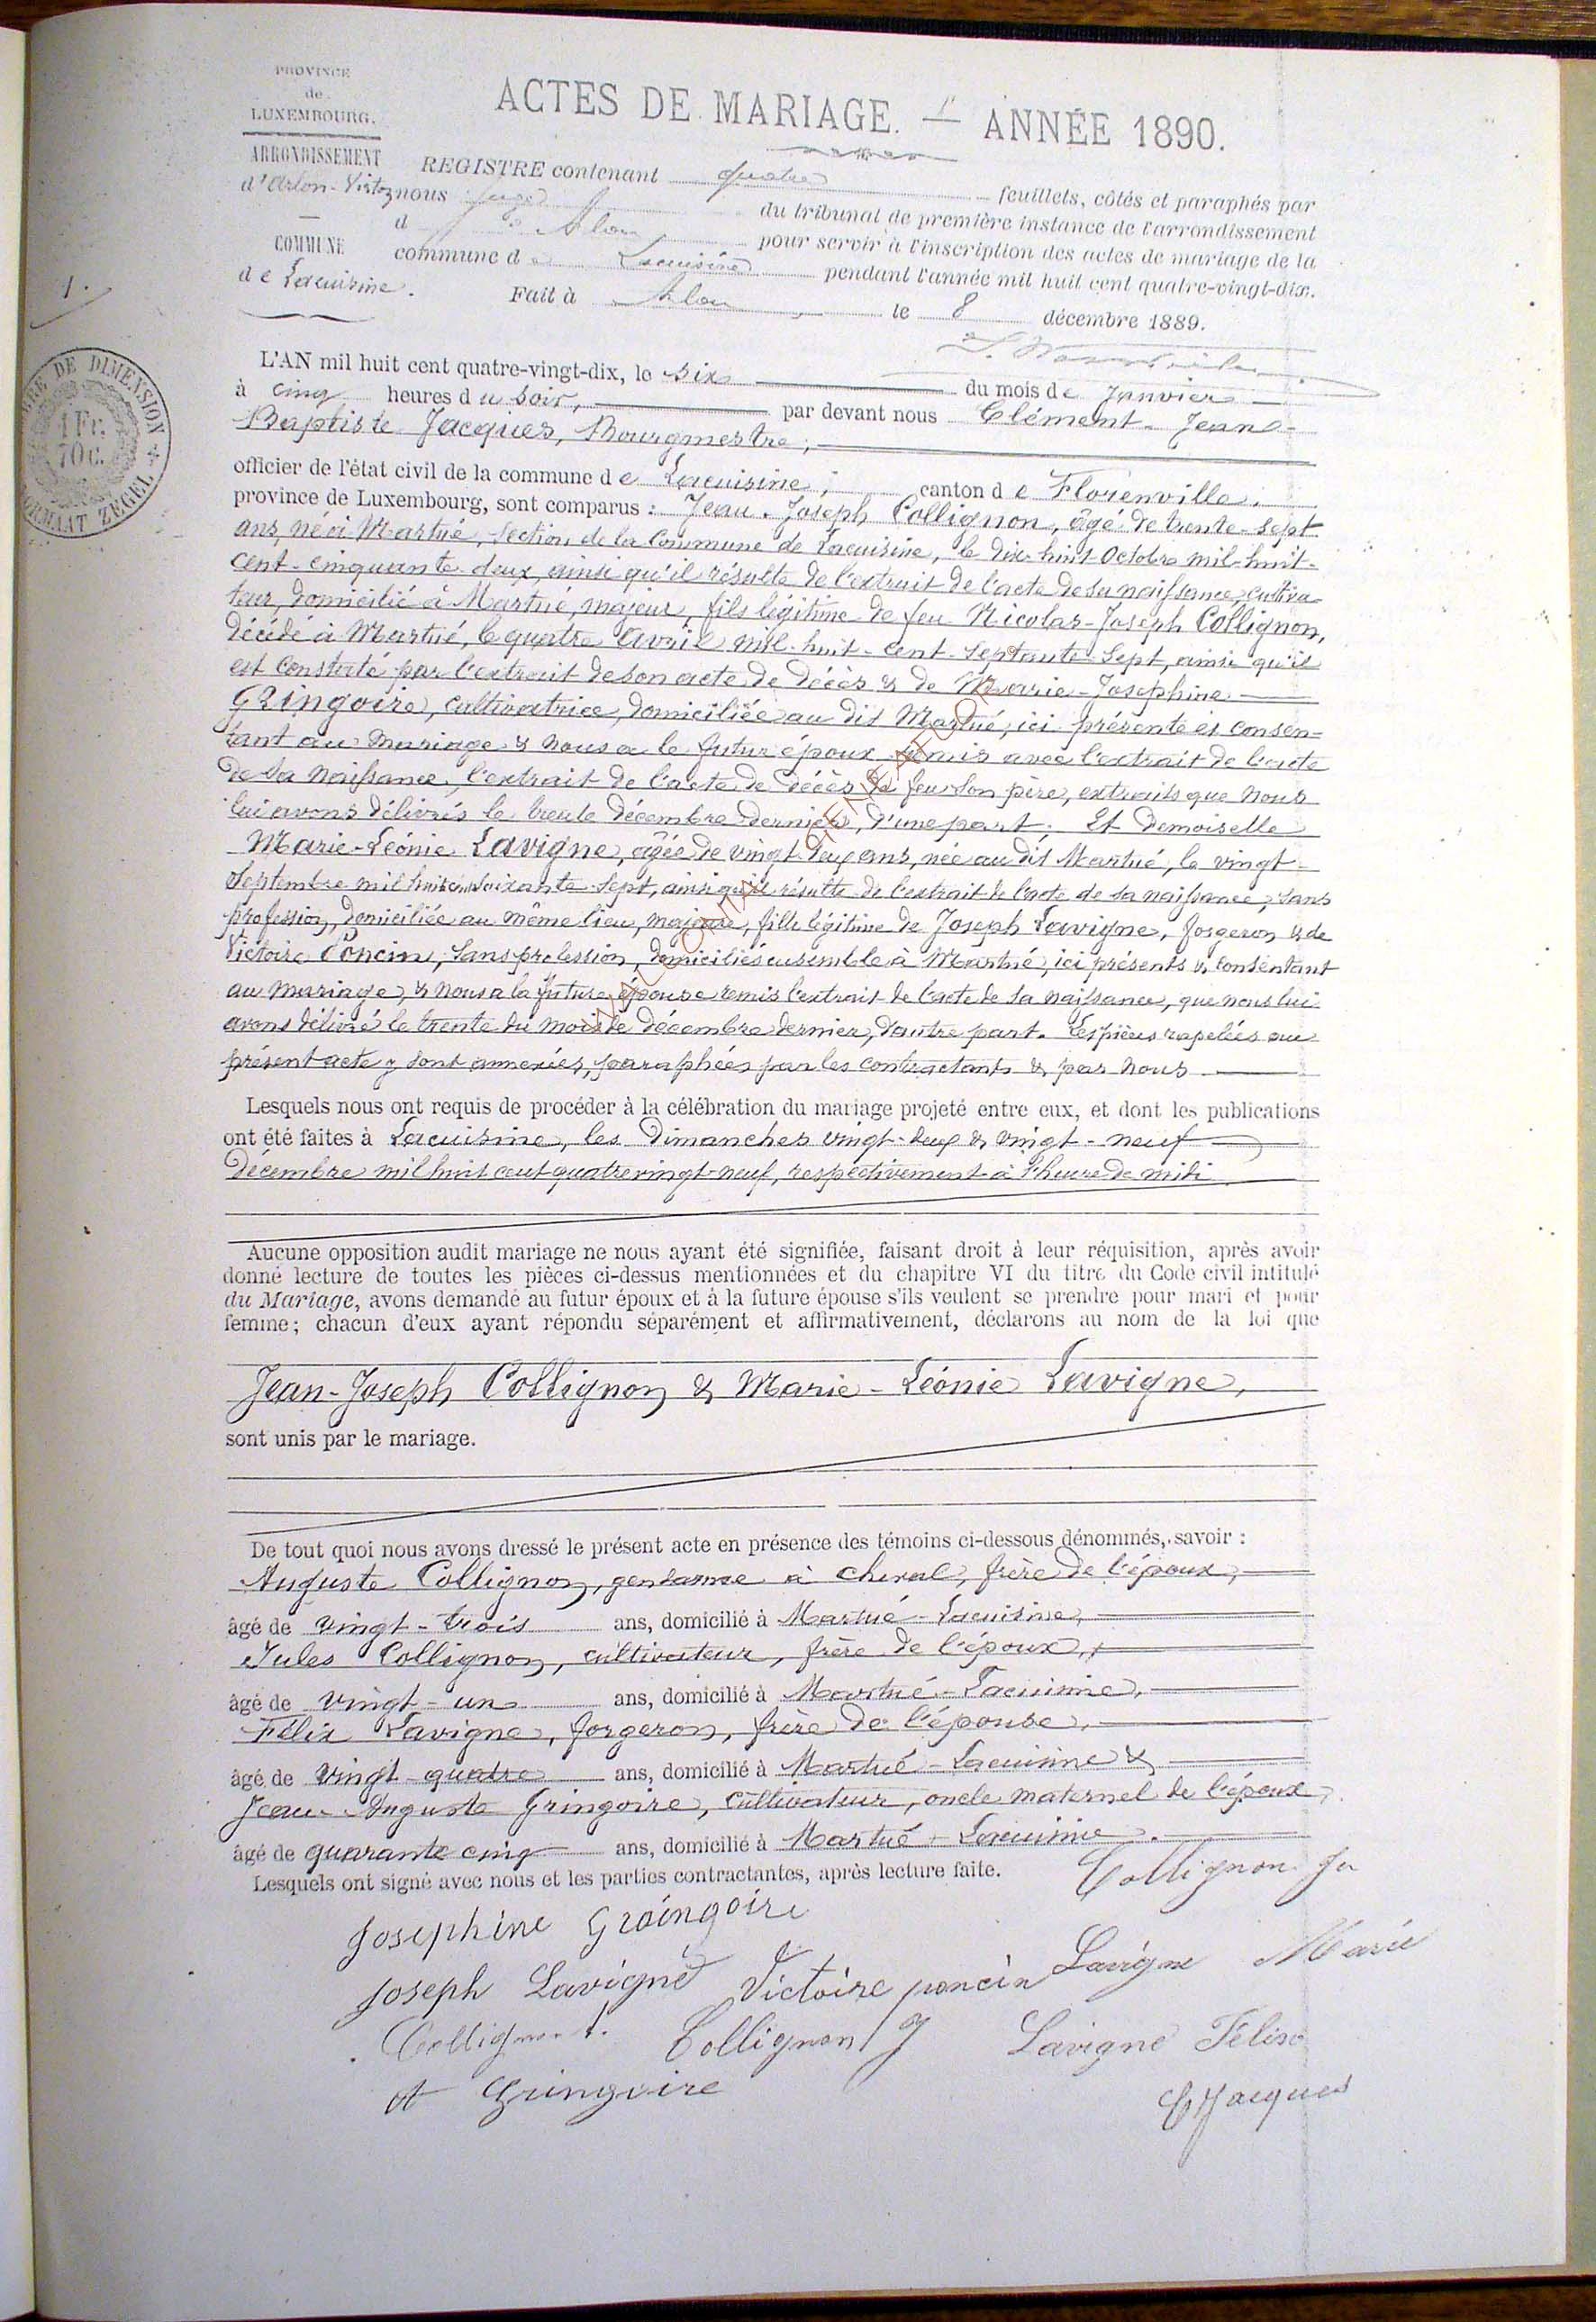 PROVINCE
de
LUXEMBOURG.
ARRONDISSEMENT
d'Arlon-Virton
COMMUNE
de Lacuisine.
1.
DE DIMENSION
1 Fr.
70 c.
FORMAAT ZEGEL
ACTES DE MARIAGE. — ANNÉE 1890.
REGISTRE contenant quatre feuillets, côtés et paraphés par
nous juge du tribunal de première instance de l'arrondissement
d Arlon pour servir à l'inscription des actes de mariage de la
commune de Lacuisine pendant l'année mil huit cent quatre-vingt-dix.
Fait à Arlon, le 8 décembre 1889.
L'AN mil huit cent quatre-vingt-dix, le six du mois de Janvier
à cinq heures du soir, par devant nous Clément-Jean-
Baptiste Jacques, Bourgmestre,
officier de l'état civil de la commune de Lacuisine, canton de Florenville,
province de Luxembourg, sont comparus : Jean-Joseph Collignon, âgé de trente-sept
ans, né à Martué, section de la Commune de Lacuisine, le dix-huit Octobre mil-huit-
cent-cinquante-deux, ainsi qu'il résulte de l'extrait de l'acte de sa naissance, cultiva-
teur, domicilié à Martué, majeur, fils légitime de feu Nicolas-Joseph Collignon,
décédé à Martué, le quatre Avril mil-huit-cent-septante-sept, ainsi qu'il
est constaté par l'extrait de son acte de décès & de Marie-Josephine
Gringoire, cultivatrice, domiciliée au dit Martué, ici présente et consen-
tant au mariage & nous a le futur époux remis avec l'extrait de l'acte
de sa naissance, l'extrait de l'acte de décès de feu son père, extraits que nous
lui avons délivrés le trente décembre dernier, d'une part; Et Demoiselle
Marie-Léonie Lavigne, âgée de vingt-deux ans, née au dit Martué, le vingt-
septembre mil huit cent soixante-sept, ainsi qu'il résulte de l'extrait de l'acte de sa naissance, sans
profession, domiciliée au même lieu, majeure, fille légitime de Joseph Lavigne, forgeron & de
Victoire Poncin, sans profession, domiciliés ensemble à Martué, ici présents & consentant
au mariage, & nous a la future épouse remis l'extrait de l'acte de sa naissance, que nous lui
avons délivré le trente du mois de décembre dernier, d'autre part. Les pièces rapelées au
présent acte y sont annexées, paraphées par les contractants & par nous
Lesquels nous ont requis de procéder à la célébration du mariage projeté entre eux, et dont les publications
ont été faites à Lacuisine, les Dimanches vingt-deux & vingt-neuf
Décembre mil huit cent quatre vingt-neuf, respectivement à l'heure de midi
Aucune opposition audit mariage ne nous ayant été signifiée, faisant droit à leur réquisition, après avoir
donné lecture de toutes les pièces ci-dessus mentionnées et du chapitre VI du titre du Code civil intitulé
du Mariage, avons demandé au futur époux et à la future épouse s'ils veulent se prendre pour mari et pour
femme; chacun d'eux ayant répondu séparément et affirmativement, déclarons au nom de la loi que
Jean-Joseph Collignon & Marie-Léonie Lavigne,
sont unis par le mariage.
De tout quoi nous avons dressé le présent acte en présence des témoins ci-dessous dénommés, savoir :
Auguste Collignon, gendarme à cheval, frère de l'époux,
âgé de vingt-trois ans, domicilié à Martué-Lacuisine,
Jules Collignon, cultivateur, frère de l'époux,
âgé de vingt-un ans, domicilié à Martué-Lacuisine,
Félix Lavigne, forgeron, frère de l'épouse,
âgé de vingt-quatre ans, domicilié à Martué-Lacuisine &
Jean-Auguste Gringoire, cultivateur, oncle maternel de l'époux,
âgé de quarante cinq ans, domicilié à Martué-Lacuisine.
Lesquels ont signé avec nous et les parties contractantes, après lecture faite.
Collignon
Josephine Graingoire
Joseph Lavigne Victoire poncin Lavigne Marie
Collignon Collignon J Lavigne Félix
A Gringoire
C Jacques